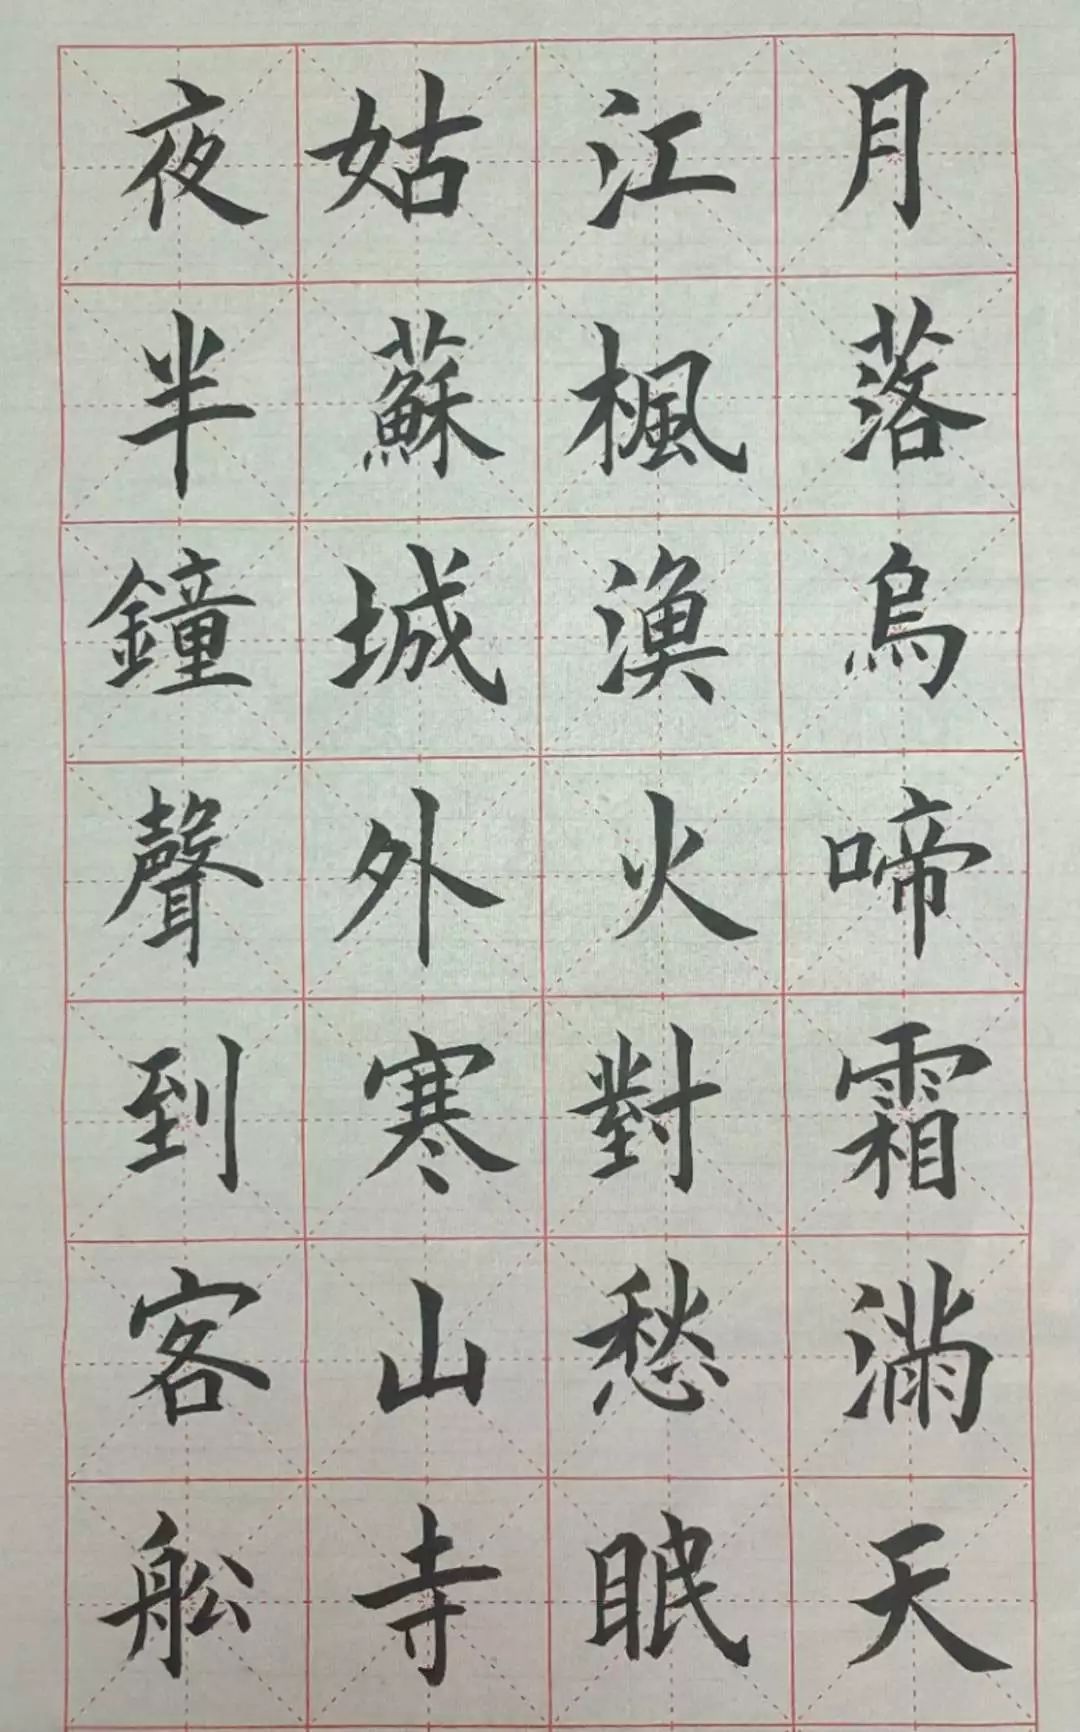 月落烏啼霜滿天
江楓漁火對愁眠
姑蘇城外寒山寺
夜半鐘聲到客舩